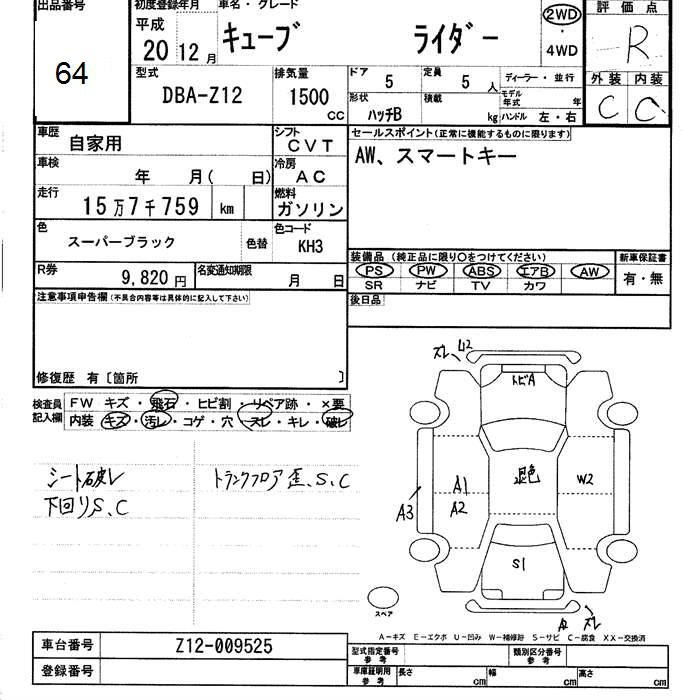 出品番号 初度登録年月 車名・グレード 評価点
平成 20 12月 キューブ ライダー 2WD R
64 4WD
型式 排気量 ドア 5 定員 5人 ディーラー・並行 外装 内装
DBA-Z12 1500 cc 形状 ハッチB 積載 kg モデル年式 年 C C
ハンドル 左・右
車歴 自家用 シフト CVT セールスポイント(正常に機能するものに限ります)
車検 年 月( 日) 冷房 AC AW、スマートキー
走行 15万7千759 km 燃料 ガソリン
色 スーパーブラック 色替 色コード KH3
装備品(純正品に限り○をつけてください) 新車保証書
R券 9,820円 名変通知期限 月 日 PS PW ABS エアB AW 有・無
SR ナビ TV カワ
注意事項申告欄(不具合内容等は具体的に記入して下さい) 後日品
修復歴 有〔箇所 〕
検査員記入欄 FW キズ・飛石・ヒビ割・リペア跡・×要
内装 キズ・汚レ・コゲ・穴・スレ・キレ・破レ
ズレ 42
トビA
シート破レ トランクフロア歪、S、C
下回りS、C
A1 退色 W2
A3 A2
S1
スペア
ズレ
A-キズ E-エクボ U-凹み W-補修跡 S-サビ C-腐食 XX-交換済
車台番号 Z12-009525 型式指定番号 参考 類別区分番号 参考
登録番号 車庫証明用 参考 長さ cm 幅 cm 高さ cm